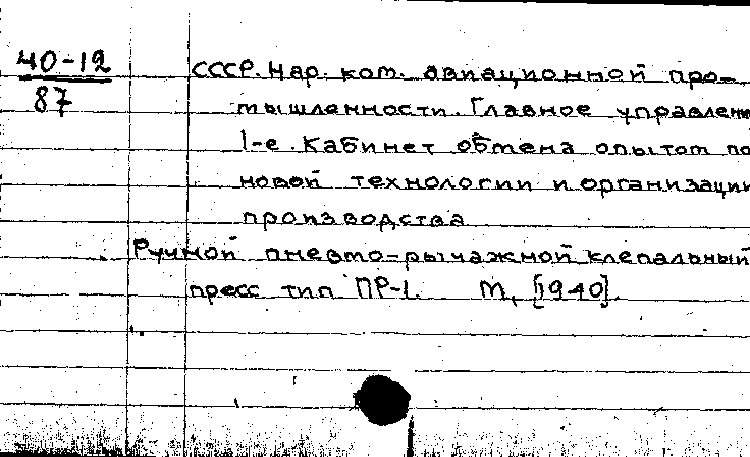 40-12
87
СССР. Нар. ком. авиационной про-
мышленности. Главное управлени
1-е. Кабинет обмена опытом по
новой технологии и организации
производства
Ручной пневмо-рычажной клепальный
пресс тип ПР-1. М., [1940].